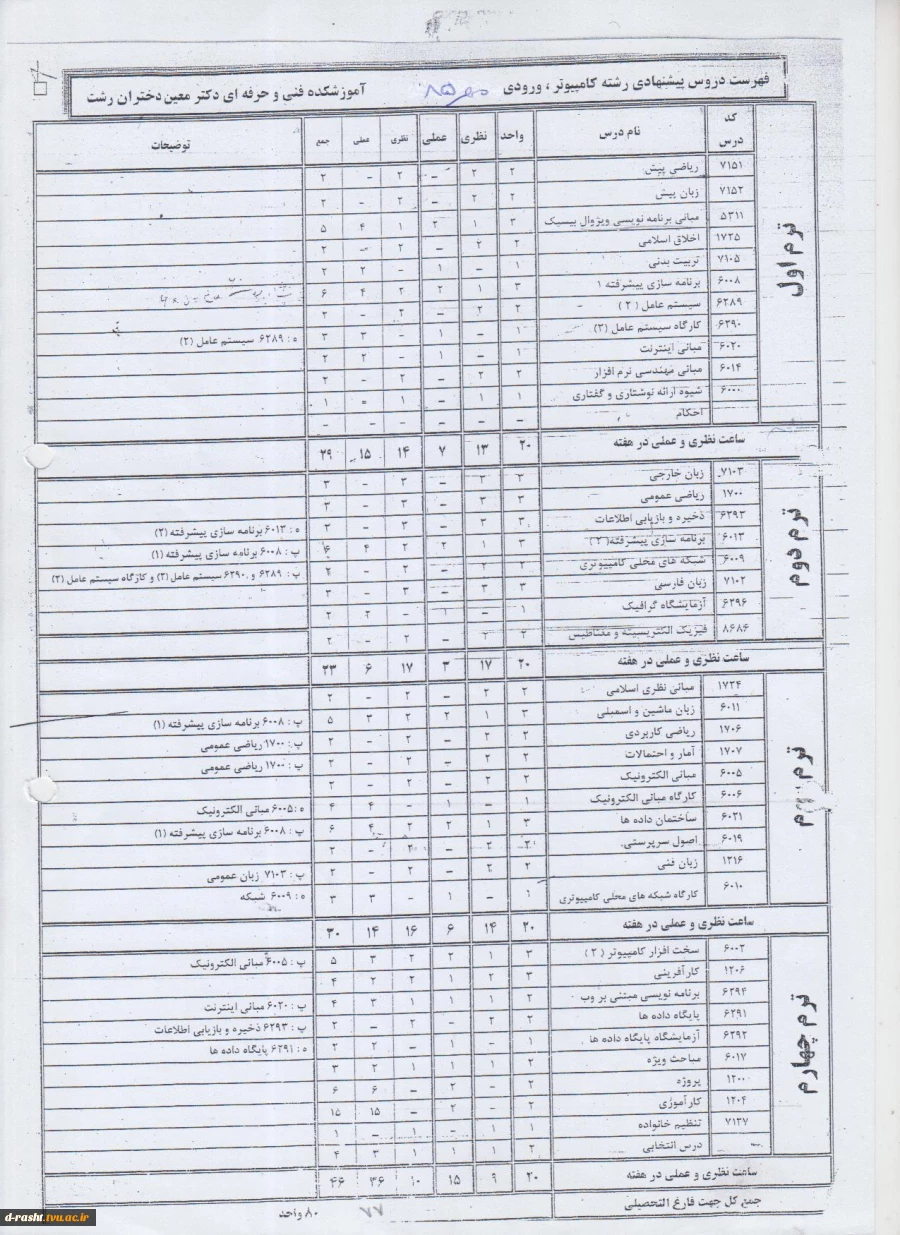 فهرست دروس پیشنهادی رشته کامپیوتر ، ورودی مهر ۸۵ آموزشکده فنی و حرفه ای دکتر معین دختران رشت
کد درس نام درس واحد نظری عملی نظری عملی جمع توضیحات
ترم اول
۷۱۵۱ ریاضی پیش ۲ ۲ – ۲ – ۲
۷۱۵۲ زبان پیش ۲ ۲ – ۲ – ۲
۵۳۱۱ مبانی برنامه نویسی ویژوال بیسیک ۳ ۱ ۲ ۱ ۴ ۵
۱۷۲۵ اخلاق اسلامی ۲ ۲ – ۲ – ۲
۷۱۰۵ تربیت بدنی ۱ – ۱ – ۲ ۲
۶۰۰۸ برنامه سازی پیشرفته ۱ ۳ ۱ ۲ ۲ ۴ ۶
۶۲۸۹ سیستم عامل ( ۲ ) ۲ ۲ – ۲ – ۲
۶۲۹۰ کارگاه سیستم عامل (۲) ۱ – ۱ – ۳ ۳ ه : ۶۲۸۹ سیستم عامل (۲)
۶۰۲۰ مبانی اینترنت ۱ – ۱ – ۲ ۲
۶۰۱۴ مبانی مهندسی نرم افزار ۲ ۲ – ۲ – ۲
۶۰۰۰ شیوه ارائه نوشتاری و گفتاری ۱ ۱ – ۱ – ۱
احکام – – – – – –
ساعت نظری و عملی در هفته ۲۰ ۱۳ ۷ ۱۴ ۱۵ ۲۹
ترم دوم
۷۱۰۳ زبان خارجی ۳ ۳ – ۳ – ۳
۱۷۰۰ ریاضی عمومی ۳ ۳ – ۳ – ۳
۶۲۹۳ ذخیره و بازیابی اطلاعات ۳ ۳ – ۳ – ۳ ه : ۶۰۱۳ برنامه سازی پیشرفته (۲)
۶۰۱۳ برنامه سازی پیشرفته( ۲ ) ۳ ۱ ۲ ۲ ۴ ۶ پ : ۶۰۰۸ برنامه سازی پیشرفته (۱)
۶۰۰۹ شبکه های محلی کامپیوتری ۲ ۲ – ۲ – ۲ پ : ۶۲۸۹ و ۶۲۹۰ سیستم عامل (۲) و کارگاه سیستم عامل (۲)
۷۱۰۲ زبان فارسی ۳ ۳ – ۳ – ۳
۶۲۹۶ آزمایشگاه گرافیک ۱ – ۱ – ۲ ۲
۸۶۸۶ فیزیک الکتریسیته و مغناطیس ۲ ۲ – ۲ – ۲
ساعت نظری و عملی در هفته ۲۰ ۱۷ ۳ ۱۷ ۶ ۲۳
ترم
۱۷۲۴ مبانی نظری اسلامی ۲ ۲ – ۲ – ۲
۶۰۱۱ زبان ماشین و اسمبلی ۳ ۱ ۲ ۲ ۳ ۵ پ : ۶۰۰۸ برنامه سازی پیشرفته (۱)
۱۷۰۶ ریاضی کاربردی ۲ ۲ – ۲ – ۲ پ : ۱۷۰۰ ریاضی عمومی
۱۷۰۷ آمار و احتمالات ۲ ۲ – ۲ – ۲ پ : ۱۷۰۰ ریاضی عمومی
۶۰۰۵ مبانی الکترونیک ۲ ۲ – ۲ – ۲
۶۰۰۶ کارگاه مبانی الکترونیک ۱ – ۱ – ۴ ۴ ه : ۶۰۰۵ مبانی الکترونیک
۶۰۲۱ ساختمان داده ها ۳ ۱ ۲ ۲ ۴ ۶ پ : ۶۰۰۸ برنامه سازی پیشرفته (۱)
۶۰۱۹ اصول سرپرستی ۲ ۲ – ۲ – ۲
۱۲۱۶ زبان فنی ۲ ۲ – ۲ – ۲ پ : ۷۱۰۳ زبان عمومی
۶۰۱۰ کارگاه شبکه های محلی کامپیوتری ۱ – ۱ – ۳ ۳ ه : ۶۰۰۹ شبکه
ساعت نظری و عملی در هفته ۲۰ ۱۴ ۶ ۱۶ ۱۴ ۳۰
ترم چهارم
۶۰۰۲ سخت افزار کامپیوتر ( ۲ ) ۳ ۱ ۲ ۲ ۳ ۵ پ : ۶۰۰۵ مبانی الکترونیک
۱۲۰۶ کارآفرینی ۳ ۲ ۱ ۲ ۲ ۴
۶۲۹۴ برنامه نویسی مبتنی بر وب ۲ ۱ ۱ ۱ ۳ ۴ پ : ۶۰۲۰ مبانی اینترنت
۶۲۹۱ پایگاه داده ها ۲ ۲ – ۲ – ۲ پ : ۶۲۹۳ ذخیره و بازیابی اطلاعات
۶۲۹۲ آزمایشگاه پایگاه داده ها ۱ – ۱ – ۲ ۲ ه : ۶۲۹۱ پایگاه داده ها
۶۰۱۷ مباحث ویژه ۲ ۱ ۱ ۱ ۲ ۳
۱۲۰۰ پروژه ۲ – ۲ – ۶ ۶
۱۲۰۴ کارآموزی ۲ – ۲ – ۱۵ ۱۵
۷۱۲۷ تنظیم خانواده ۱ ۱ – ۱ – ۱
درس انتخابی ۲ ۱ ۱ ۱ ۳ ۴
ساعت نظری و عملی در هفته ۲۰ ۹ ۱۵ ۱۰ ۳۶ ۴۶
جمع کل جهت فارغ التحصیلی ۷۷ ۸۰ واحد
d-rasht.tvu.ac.ir